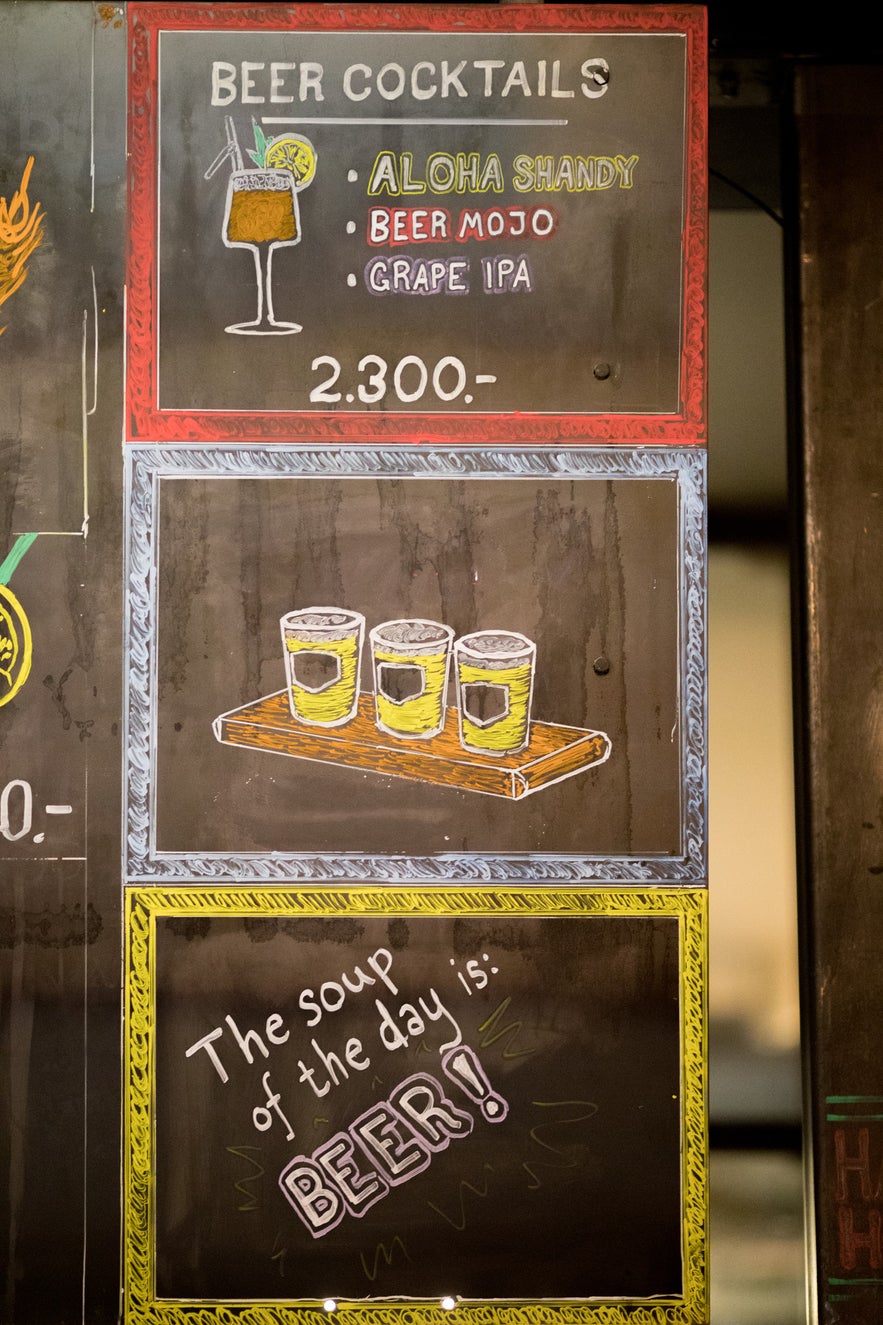 BEER COCKTAILS
• ALOHA SHANDY
• BEER MOJO
• GRAPE IPA
2.300.-
0.-
The soup
of the day is:
BEER!